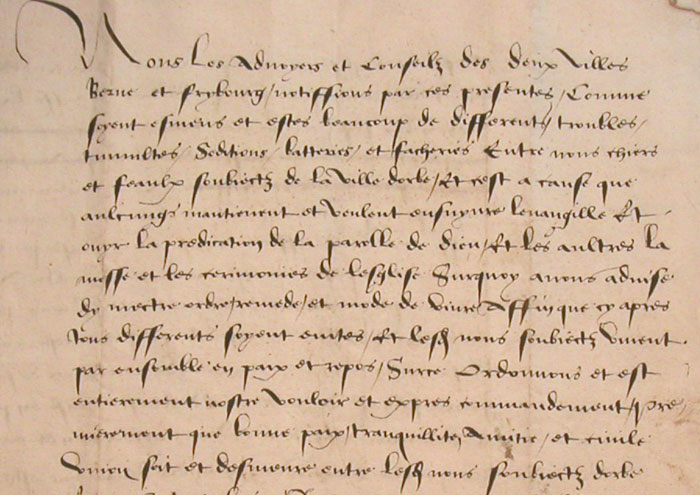 Nous Les Advoyers et Conseilz des deux villes
Berne et frybourg, notiffions par ces presentes, Comme
soyent esmeus et estes beaucoup de differents, troubles,
tumultes, Seditions, batteries, et facheries Entre nous chiers
et feaulx soubiectz de la ville dorbe, Et cest a cause que
aulcungs maintienent et veulent ensuyvre levangille Et
ouyr la predication de la parolle de dieu, Et les aultres la
messe et les cerimonies de leglise Surquoy avons advise
dy mectre ordre, remede, et mode de vivre Affin que cy apres
tous differents soyent evites, Et lesd nous soubiectz vivent
par ensemble en paix et repos, Surce Ordonnons et est
entierement nostre vouloir et expres commandement, Pre
mierement que bonne paix, tranquillite, Amitie, et civile
Union soit et desmeure entre lesd nous soubiectz dorbe